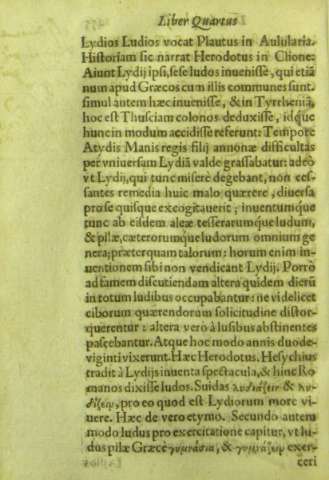 Liber Quartus
Lydios Ludios vocat Plautus in Aulularia.
Historiam sic narrat Herodotus in Clione:
Aiunt Lydij ipsi, sese ludos inuenisse, qui etiã
num apud Græcos cum illis communes sunt.
simul antem hæc inuenisse, & in Tyrrheniã,
hoc est Thusciam colonos deduxisse, idque
hunc in modum accidisse referunt: Tempore
Atydis Manis regis filij annonæ difficultas
per vniuersam Lydiã valde grassabatur: adeò
vt Lydij, qui tunc miserè degebant, non ces-
santes remedia huic malo quærere, diuersa
pro se quisque excogitauerit; inuentumque
tunc ab eisdem aleæ tesserarumque ludum,
& pilæ, cæterorumque ludorum omnium ge
nera; præterquam talorum: horum enim in-
uentionem sibi non vendicant Lydij. Porrò
ad famem discutiendam altera quidem dierũ
in totum ludibus occupabantur: ne videlicet
ciborum quærendorum solicitudine distor-
querentur: altera verò à lusibus abstinentes
pascebantur. Atque hoc modo annis duode-
viginti vixerunt. Hæc Herodotus. Hesychius
tradit à Lydijs inuenta spectacula, & hinc Ro
manos dixisse ludos. Suidas λυδιάζειν & λυ-
δίζειν, pro eo quod est Lydiorum more vi-
uere. Hæc de vero etymo. Secundo autem
modo ludus pro exercitatione capitur, vt lu-
dus pilæ Græcè γυμνάσια, & γυμνάζειν exer-
ceri